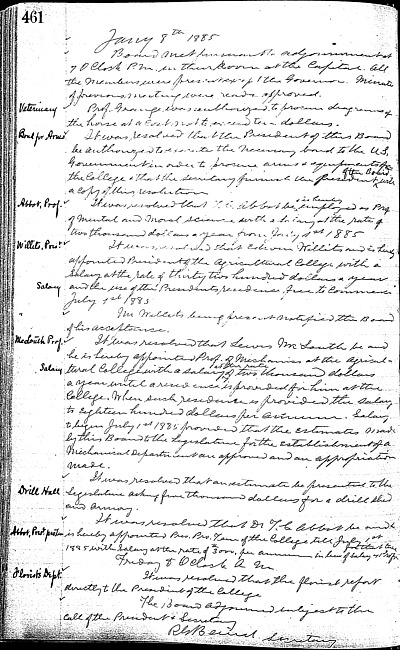 461
Jany 8th 1885
Board met pursuant to adjournment at
7 O Clock P.M. in their Room at the Capitol. All
the Members were present except the Governor. Minutes
of previous meeting were read & approved.
Veterinary Prof. Grange was authorized to procure diagrams of
the horse at a cost not to exceed ten dollars.
Bond for Arms It was resolved that the President of this Board
be authorized to execute the necessary bond to the U.S.
Government in order to procure arms & equipments for
the College & that the Secretary furnish the President of the Board with
a copy of this resolution
Abbot, Prof. It was resolved that T. C. Abbot be and is hereby employed as Prof
of Mental and Moral Science with a salary at the rate of
two thousand dollars a year from July 1st 1885
Willits, Pres. It was resolved that Edwin Willits and is hereby
appointed President of the Agricultural College with a
Salary at the rate of thirty two hundred dollars a year
Salary and the use of the Presidents residence free to commence
July 1st 1885
" Mr Willets being present notified the Board
of his acceptance.
McLouth Prof. It was resolved that Lewis McLouth be and
he is hereby appointed Prof. of Mechanics at the Agricul-
Salary tural College with a salary at the rate of two thousand dollars
a year until a residence is provided for him at the
College. When such residence is provided the salary
to be eighteen hundred dollars per annum. Salary
to begin July 1st 1885 provided that the estimates made
by this Board to the Legislature for the establishment of a
Mechanical Department are approved and an appropriation
made.
It was resolved that an estimate be presented to the
Drill Hall Legislature asking four thousand dollars for a drill shed
and armory.
It was resolved that Dr T. C. Abbot be and he
Abbot, Pres. pro tem is hereby appointed Pres. Pro. Tem of the College till July 1st
1885 with Salary at the rate of 3000. per annum in lieu of Salary as Prof
Friday 8 O Clock A.M.
Florist's Dept. It was resolved that the florist report
directly to the President of the College
The Board adjourned subject to the
call of the President & Secretary
R G Baird Secretary